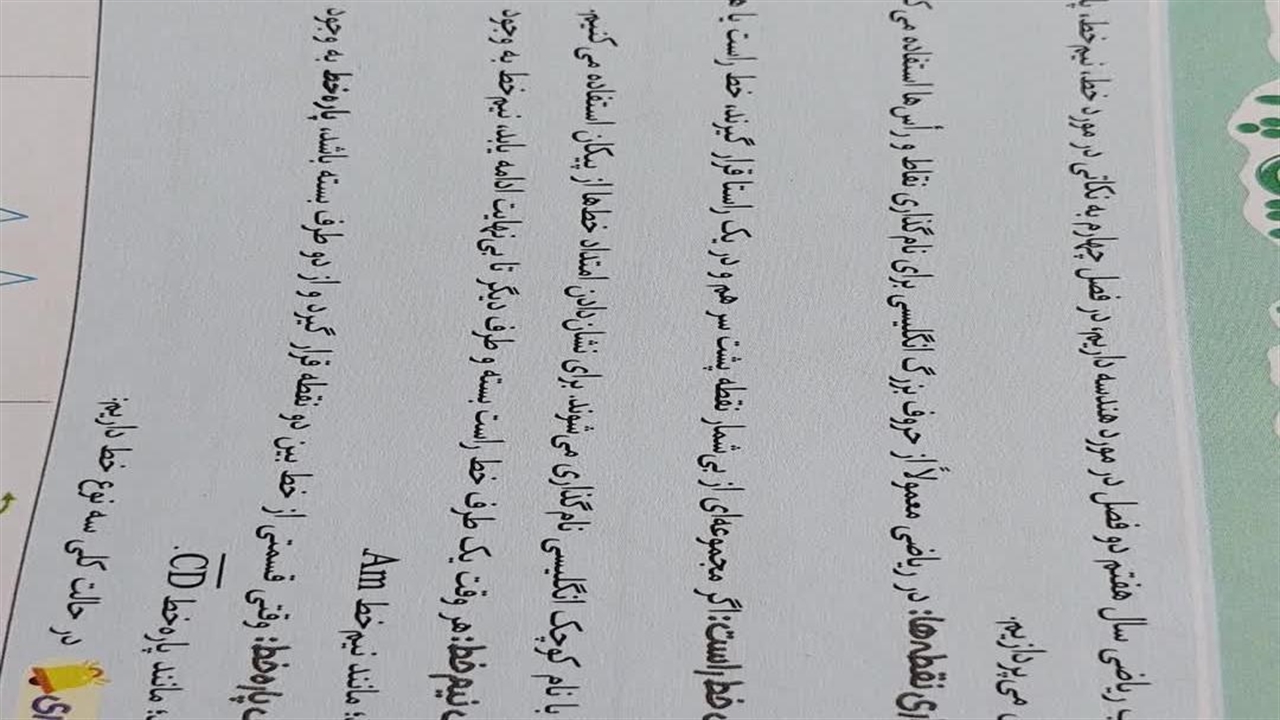 ریاضی سال هفتم دو فصل در مورد هندسه داریم، در فصل چهارم به نکاتی در مورد خط، نیم‌خط،
می‌پردازیم.
نقطه‌ها: در ریاضی معمولاً از حروف بزرگ انگلیسی برای نام‌گذاری نقاط و رأس‌ها استفاده می
خط راست: اگر مجموعه‌ای از بی‌شمار نقطه پشت سر هم و در یک راستا قرار گیرند، خط راست با
با نام کوچک انگلیسی نام‌گذاری می‌شوند. برای نشان‌دادن امتداد خط‌ها از پیکان استفاده می‌کنیم.
نیم‌خط: هر وقت یک طرف خط راست بسته و طرف دیگر تا بی‌نهایت ادامه یابد، نیم‌خط به وجود
؛ مانند نیم‌خط Am
پاره‌خط: وقتی قسمتی از خط بین دو نقطه قرار گیرد و از دو طرف بسته باشد، پاره‌خط به وجود
؛ مانند پاره‌خط C̅D̅.
در حالت کلی سه نوع خط داریم: